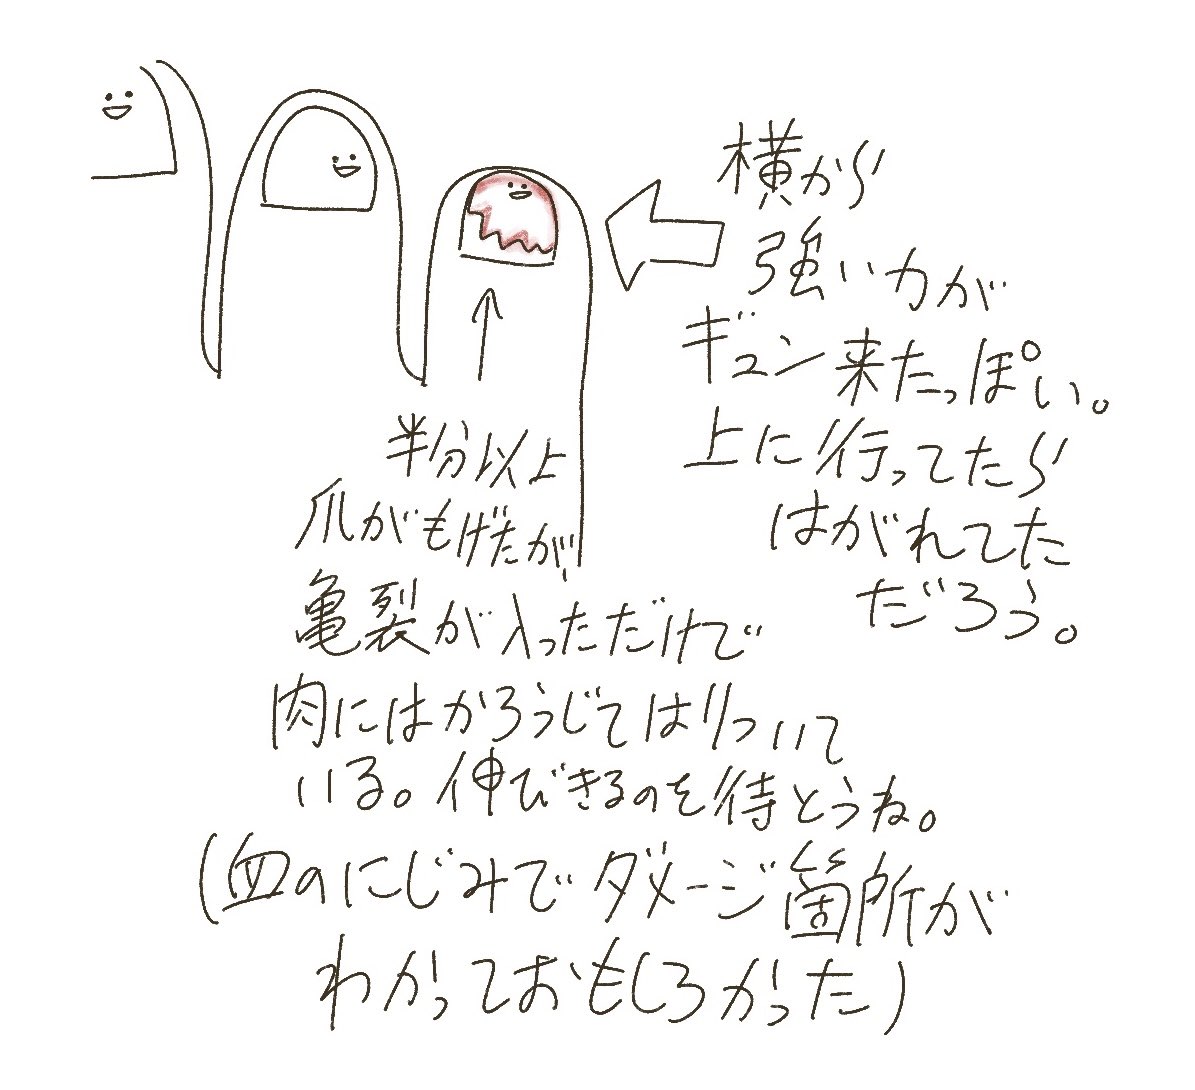 横から
強い力が
ギュン来たっぽい。
上に行ってたら
はがれてた
だろう。
半分以上
爪がもげたが、
亀裂が入っただけで
肉にはかろうじてはりついて
いる。伸びきるのを待とうね。
(血のにじみでダメージ箇所が
わかっておもしろかった)